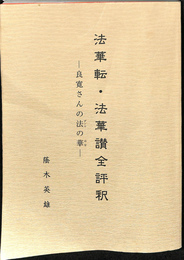 法華転・法華讃全評釈
—良寛さんの法の華—
蔭木英雄